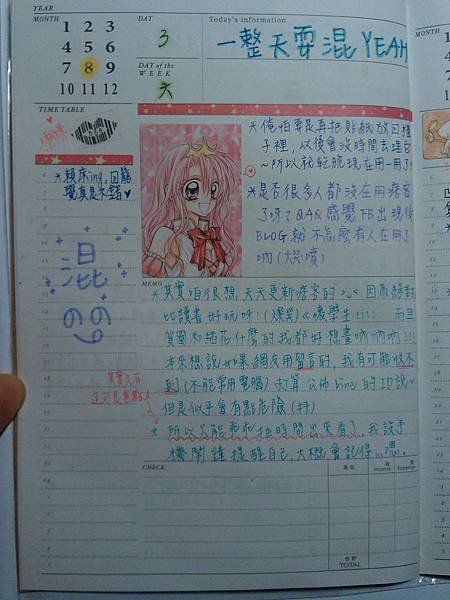 YEAR
MONTH
1 2 3
4 5 6
7 8 9
10 11 12
DAY
3
DAY of the
WEEK
六
Today's information
一整天耍混 YEAH
TIME TABLE
*賴床ing,回籠
覺真是不錯♥
混
*俺怕要是再把貼紙放回櫃
子裡,以後會沒時間去理它
~所以就乾脆現在用一用了
*是否很多人都沒在用痞客
了呀?QAQ 感覺FB出現後
BLOG就不怎麼有人在用了
吶(大噴)
MEMO
*其實咱很想天天更新痞客的>"< 因為絕對
比讀書好玩呀!(爆笑)《壞學生!!! 而且
賀圖和插花什麼的我都好想畫吶吶吶!!!
本來想說如果網友用留言的,我有可能收不
到(不能常用電腦)打算公佈Line的ID說~
但是似乎會有點危險(抖)
*所以只能乖乖抽時間出來看了,我設手
機鬧鐘提醒自己,大概會記得...嗯。
其實只有
這句是重點
CHECK
項目
收
Income
支
Expenses
合計
TOTAL
MONTH
1
4
7
10